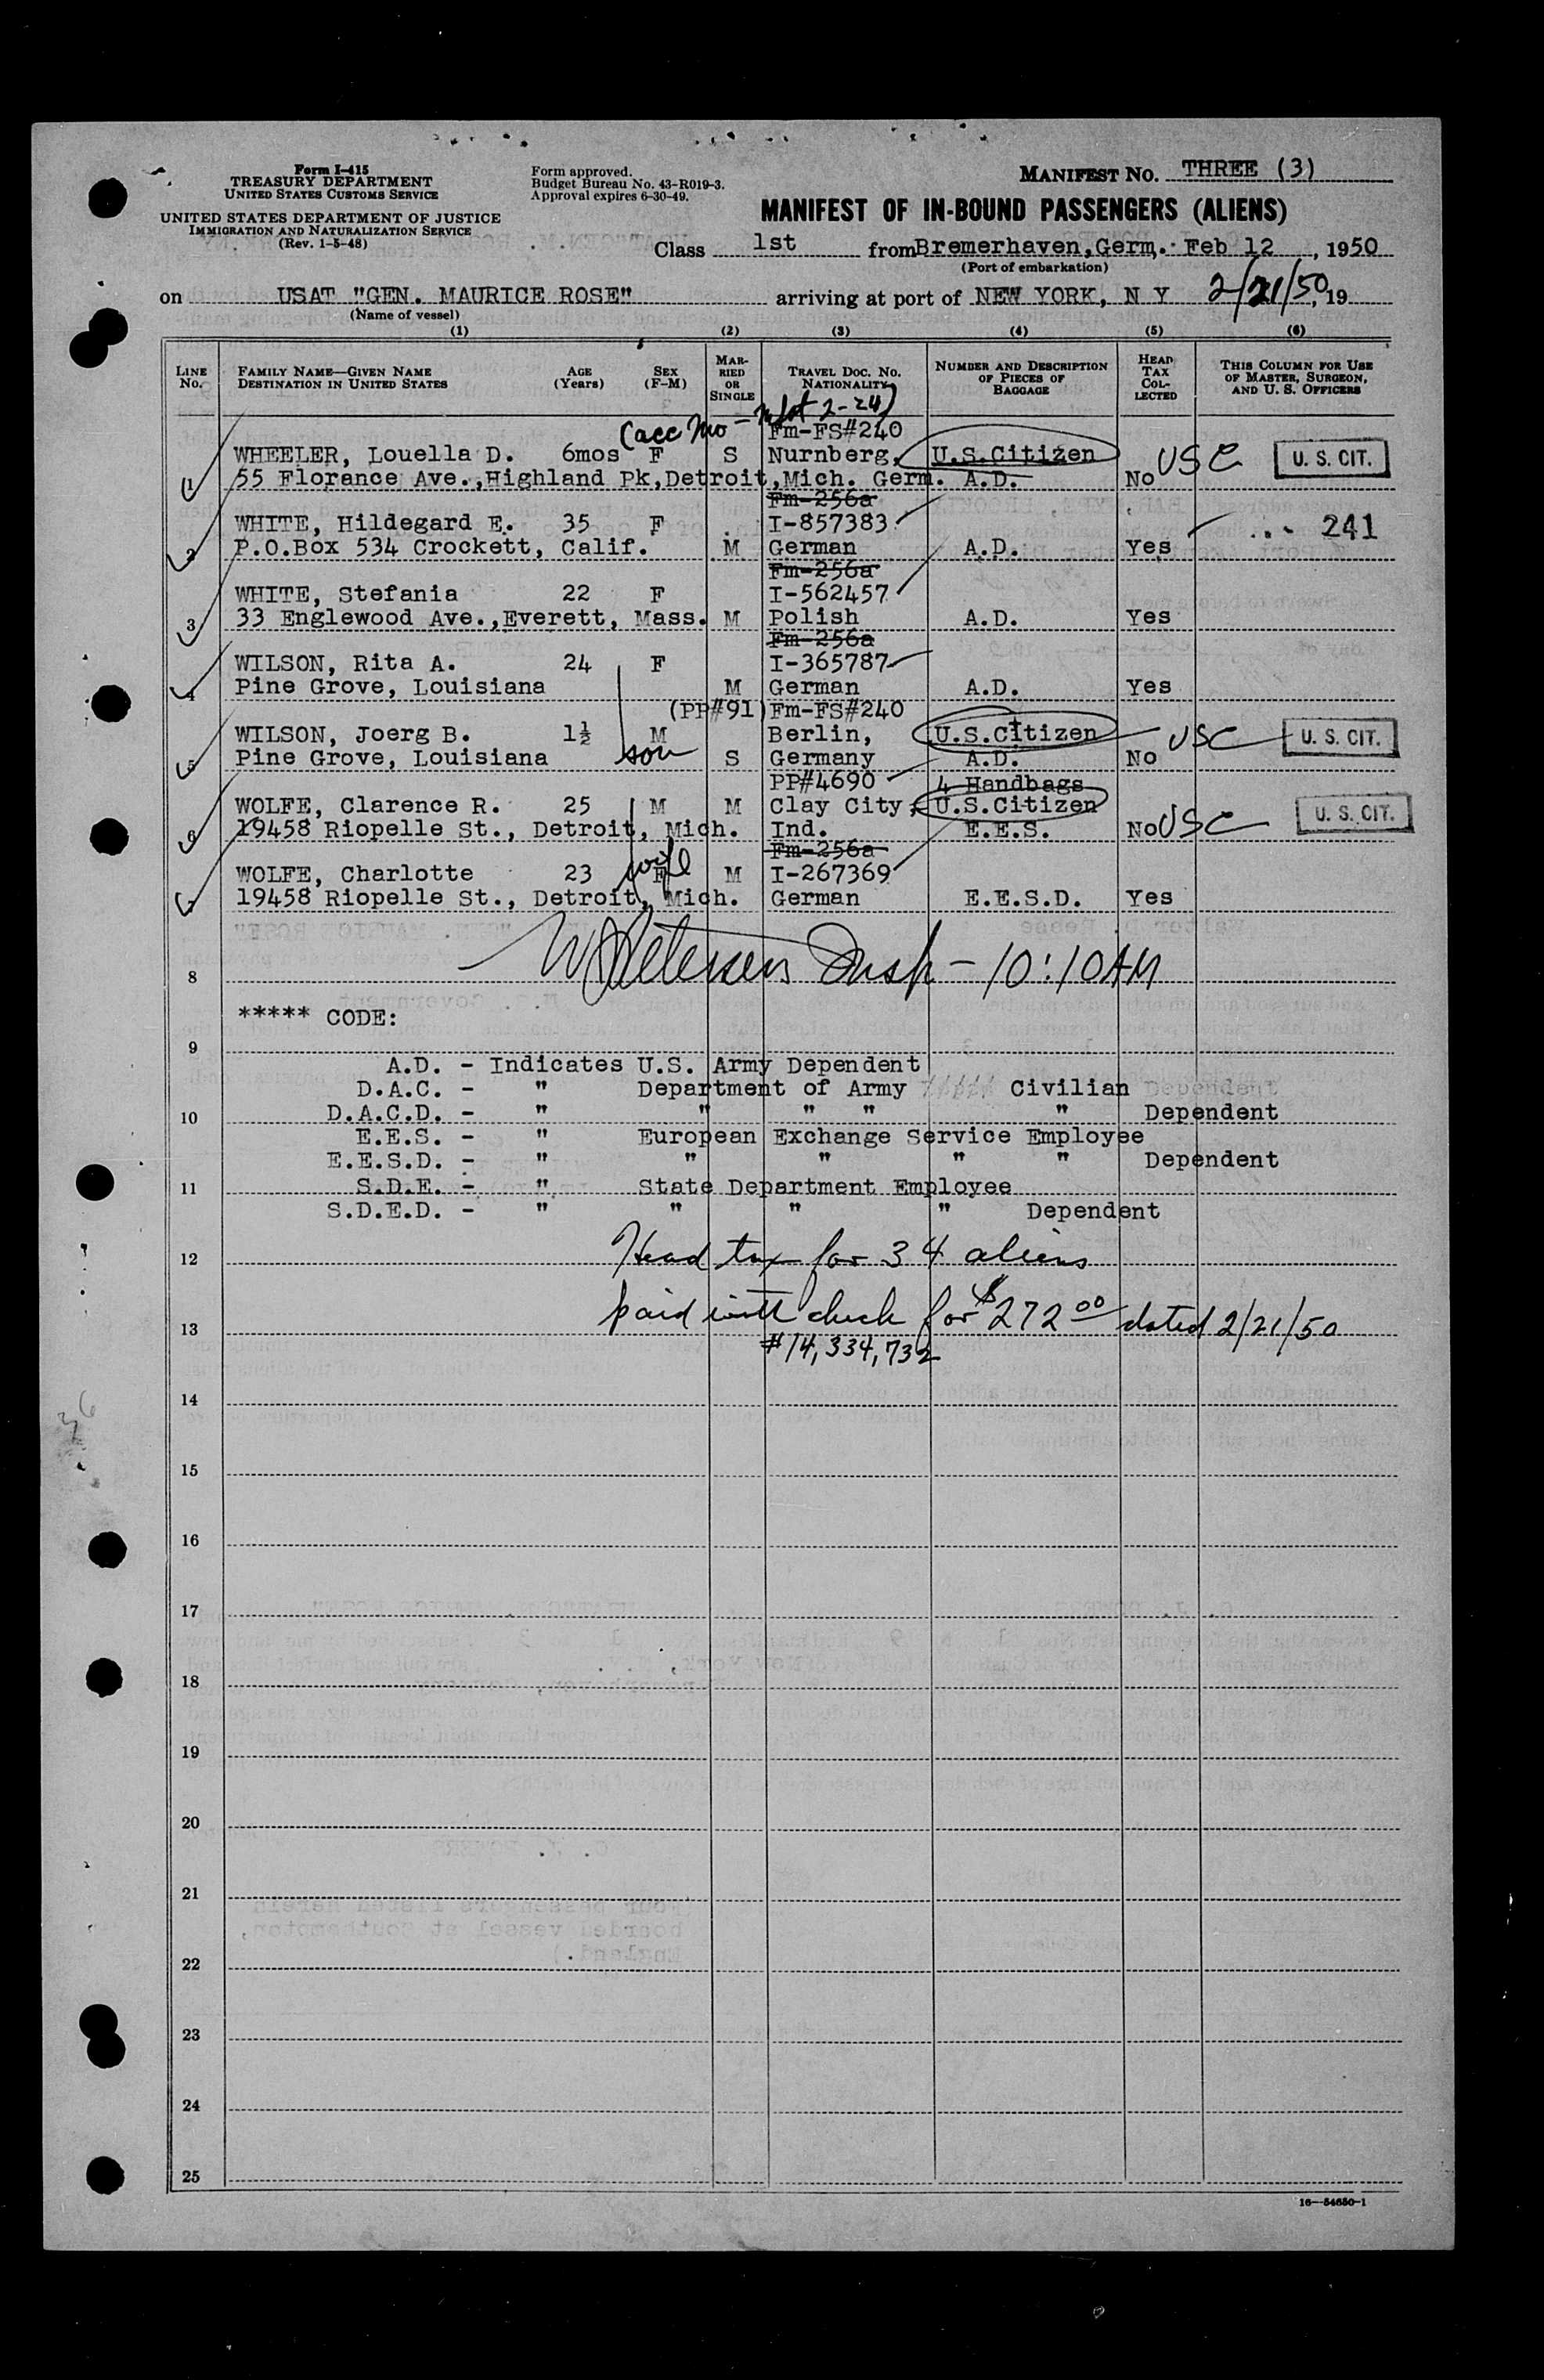 Form I-415
TREASURY DEPARTMENT
UNITED STATES CUSTOMS SERVICE
UNITED STATES DEPARTMENT OF JUSTICE
IMMIGRATION AND NATURALIZATION SERVICE
(Rev. 1-5-48)
Form approved.
Budget Bureau No. 43-R019-3.
Approval expires 6-30-49.
MANIFEST NO. THREE (3)
MANIFEST OF IN-BOUND PASSENGERS (ALIENS)
Class 1st from Bremerhaven, Germ. Feb 12, 1950
(Port of embarkation)
on USAT "GEN. MAURICE ROSE" arriving at port of NEW YORK, N Y 2/21/50, 19
(Name of vessel)
(1) (2) (3) (4) (5) (6)
LINE No.
FAMILY NAME—GIVEN NAME
DESTINATION IN UNITED STATES
AGE (Years)
SEX (F-M)
MARRIED OR SINGLE
TRAVEL DOC. NO. NATIONALITY
NUMBER AND DESCRIPTION OF PIECES OF BAGGAGE
HEAD TAX COLLECTED
THIS COLUMN FOR USE OF MASTER, SURGEON, AND U. S. OFFICERS
(acc Mo — 2-24)
Fm-FS#240
1 WHEELER, Louella D. 6mos F S Nurnberg, U.S.Citizen USC U. S. CIT.
55 Florance Ave.,Highland Pk,Detroit,Mich. Germ. A.D. No
Fm-256a
2 WHITE, Hildegard E. 35 F I-857383 241
P.O.Box 534 Crockett, Calif. M German A.D. Yes
Fm-256a
3 WHITE, Stefania 22 F I-562457
33 Englewood Ave.,Everett, Mass. M Polish A.D. Yes
Fm-256a
4 WILSON, Rita A. 24 F I-365787
Pine Grove, Louisiana M German A.D. Yes
(PP#91) Fm-FS#240
5 WILSON, Joerg B. 1½ M Berlin, U.S.Citizen USC U. S. CIT.
Pine Grove, Louisiana son S Germany A.D. No
PP#4690 4 Handbags
6 WOLFE, Clarence R. 25 M M Clay City, U.S.Citizen U. S. CIT.
19458 Riopelle St., Detroit, Mich. Ind. E.E.S. No USC
Fm-256a
7 WOLFE, Charlotte 23 wife F M I-267369
19458 Riopelle St., Detroit, Mich. German E.E.S.D. Yes
8 Petersen Insp — 10:10AM
***** CODE:
9
A.D. - Indicates U.S. Army Dependent
D.A.C. - " Department of Army Civilian Dependent
10 D.A.C.D. - " " " " " Dependent
E.E.S. - " European Exchange Service Employee
E.E.S.D. - " " " " " Dependent
11 S.D.E. - " State Department Employee
S.D.E.D. - " " " " Dependent
12 Head tax for 34 aliens
13 paid with check for $272 00 dated 2/21/50
#14,334,732
14
15
16
17
18
19
20
21
22
23
24
25
16—54650-1